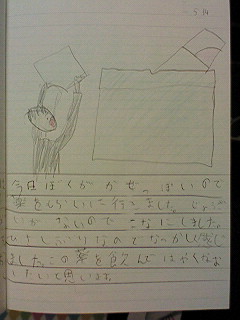 5.14
今日ぼくがかぜっぽいので
薬をもらいに行きました。じょざ
いがないのでこなにしました。
ひさしぶりなのでなつかしく感じ
ました。この薬を飲んではやくなお
したいと思います。